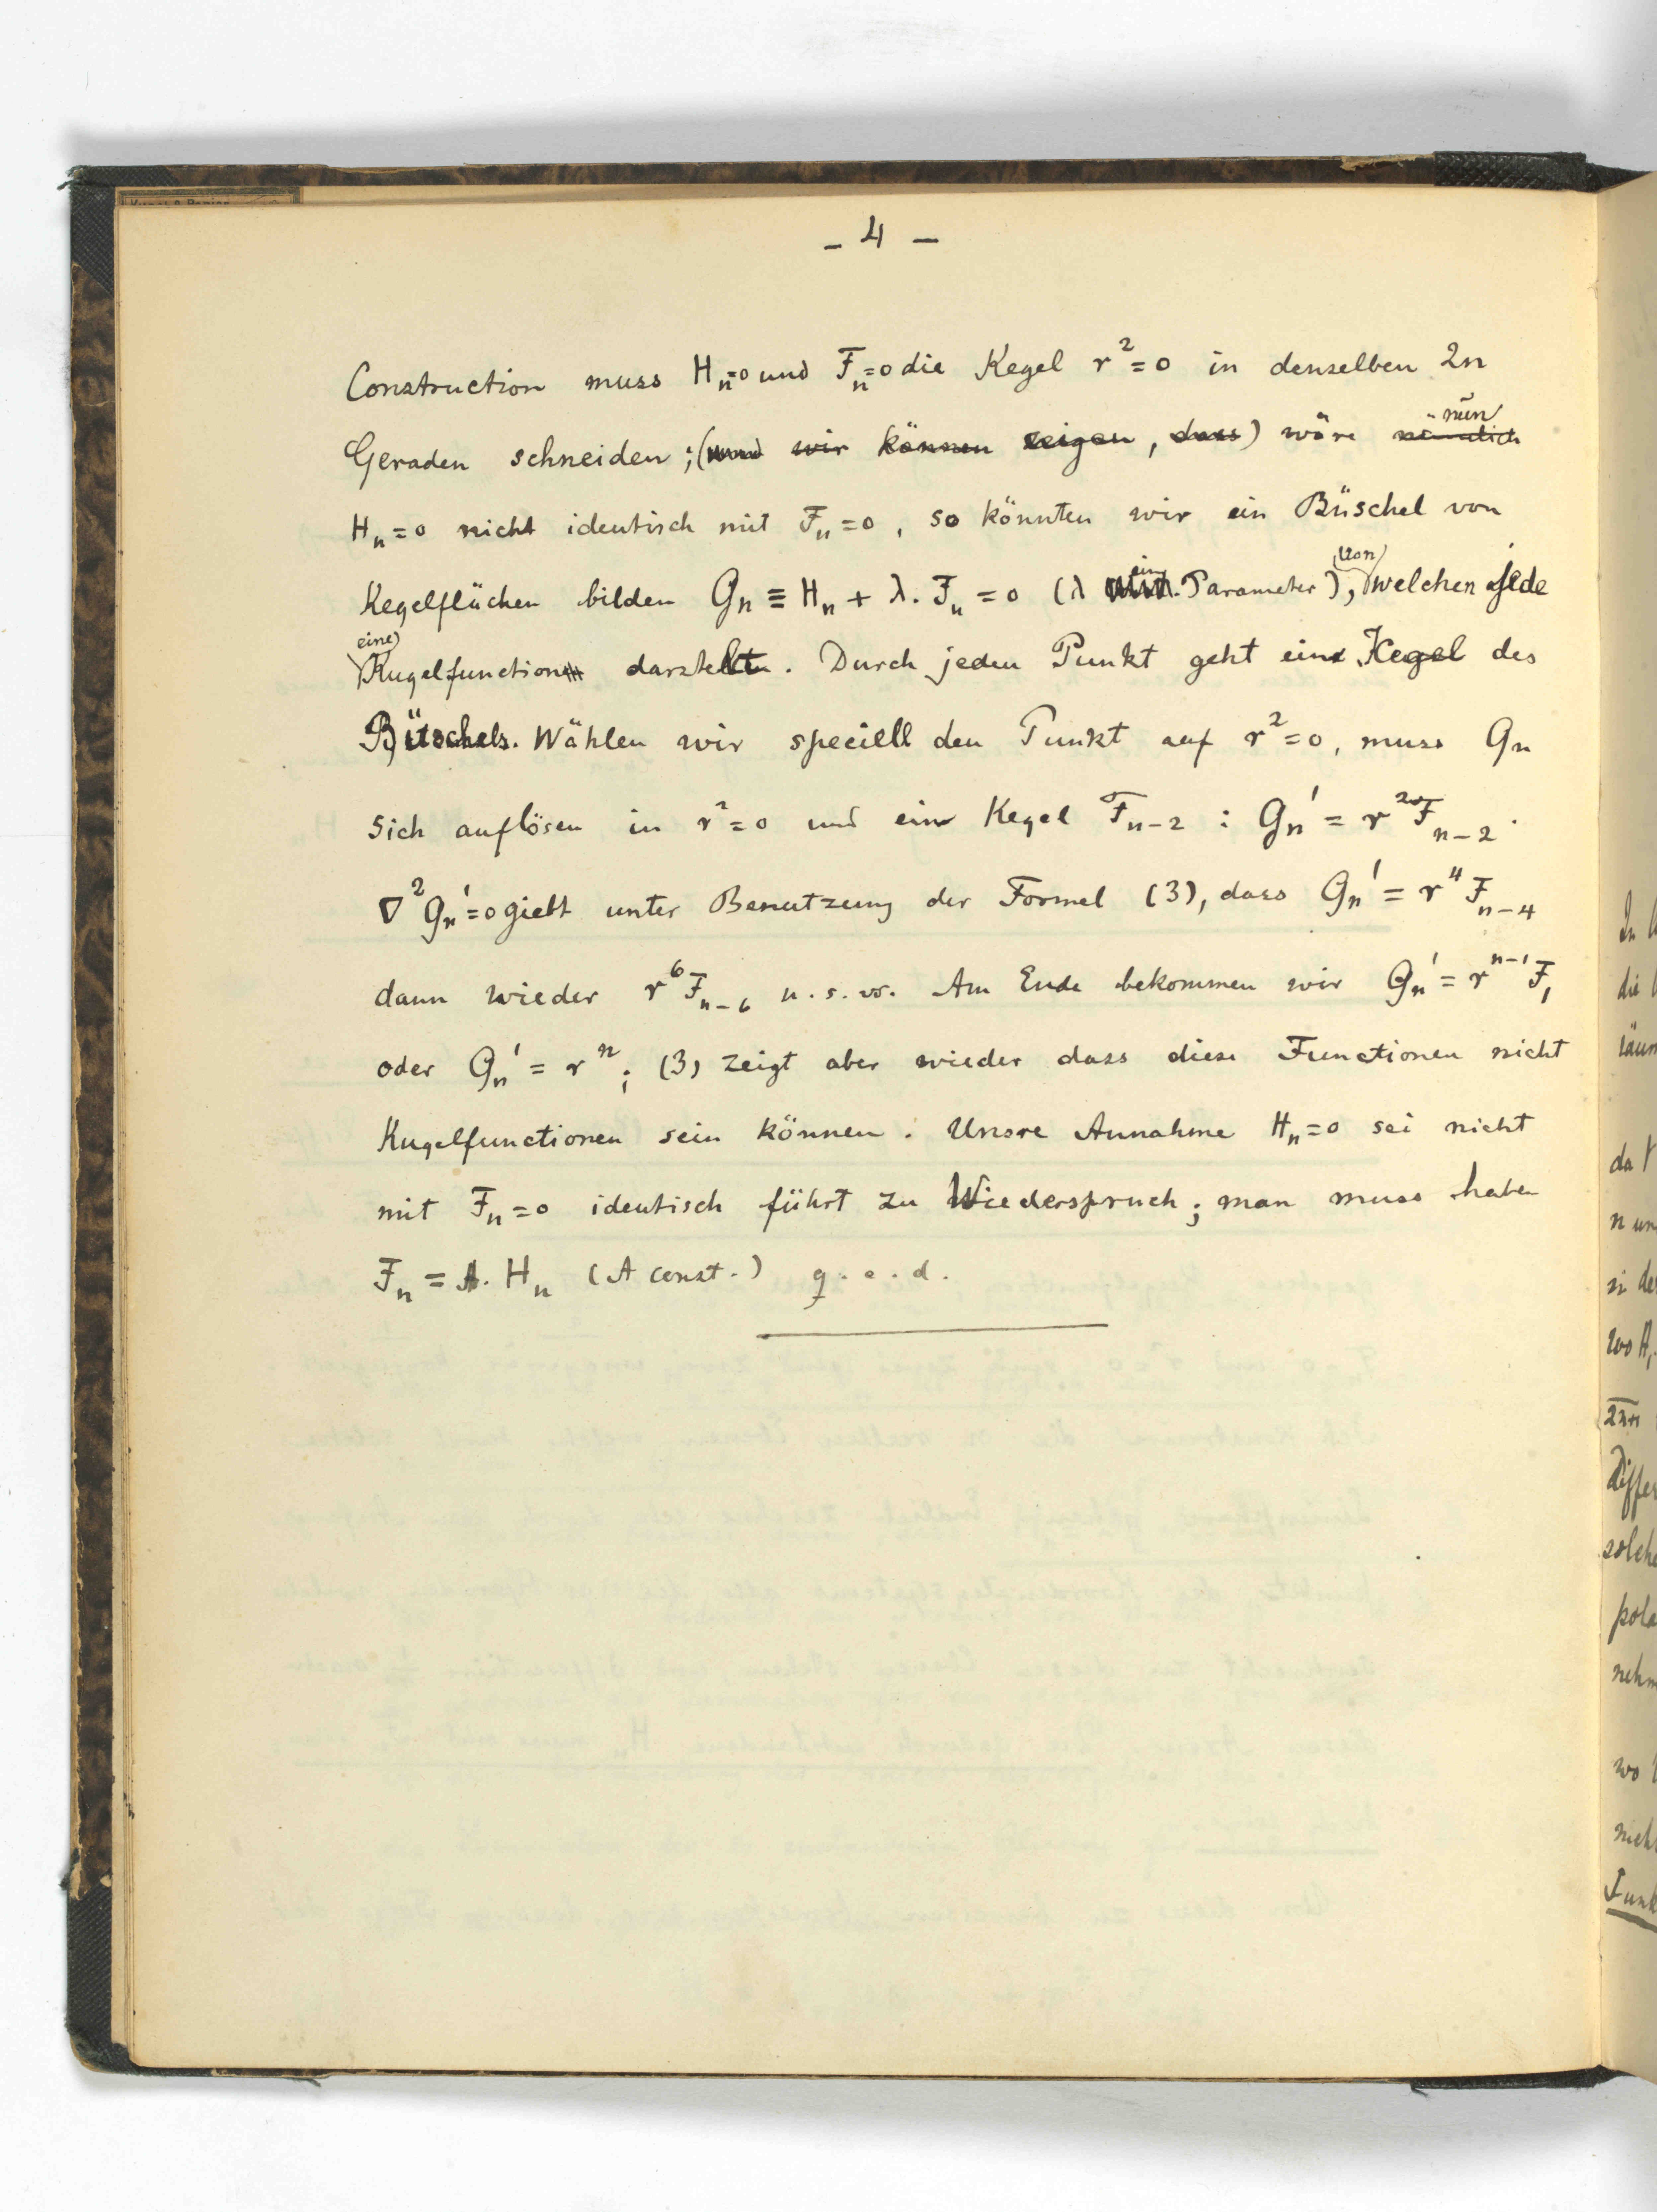 – 4 –
Construction muss Hₙ=0 und Fₙ=0 die Kegel r²=0 in denselben 2n
nun
Geraden schneiden ; (und wir können zeigen, dass) wäre nämlich
Hₙ=0 nicht identisch mit Fₙ=0, so könnten wir ein Büschel von
ein (von)
Kegelflächen bilden Gₙ ≡ Hₙ + λ. Fₙ = 0 (λ Parameter), welchen jede
eine
Kugelfunction darstellt. Durch jeden Punkt geht ein Kegel des
Büschels. Wählen wir speciell den Punkt auf r²=0, muss Gₙ
sich auflösen in r²=0 und ein Kegel Fₙ₋₂ : Gₙ' = r²Fₙ₋₂.
∇²Gₙ'=0 giebt unter Benutzung der Formel (3), dass Gₙ' = r⁴Fₙ₋₄
dann wieder r⁶Fₙ₋₆ u.s.w. Am Ende bekommen wir Gₙ' = rⁿ⁻¹F₁
oder Gₙ' = rⁿ; (3) zeigt aber wieder dass diese Functionen nicht
Kugelfunctionen sein können. Unsre Annahme Hₙ=0 sei nicht
mit Fₙ=0 identisch führt zu Wiederspruch; man muss haben
Fₙ = A. Hₙ (A const.) q.e.d.
In
die
da
n un
wo
Differ
solche
pola
nehm
wo
nich
Funk